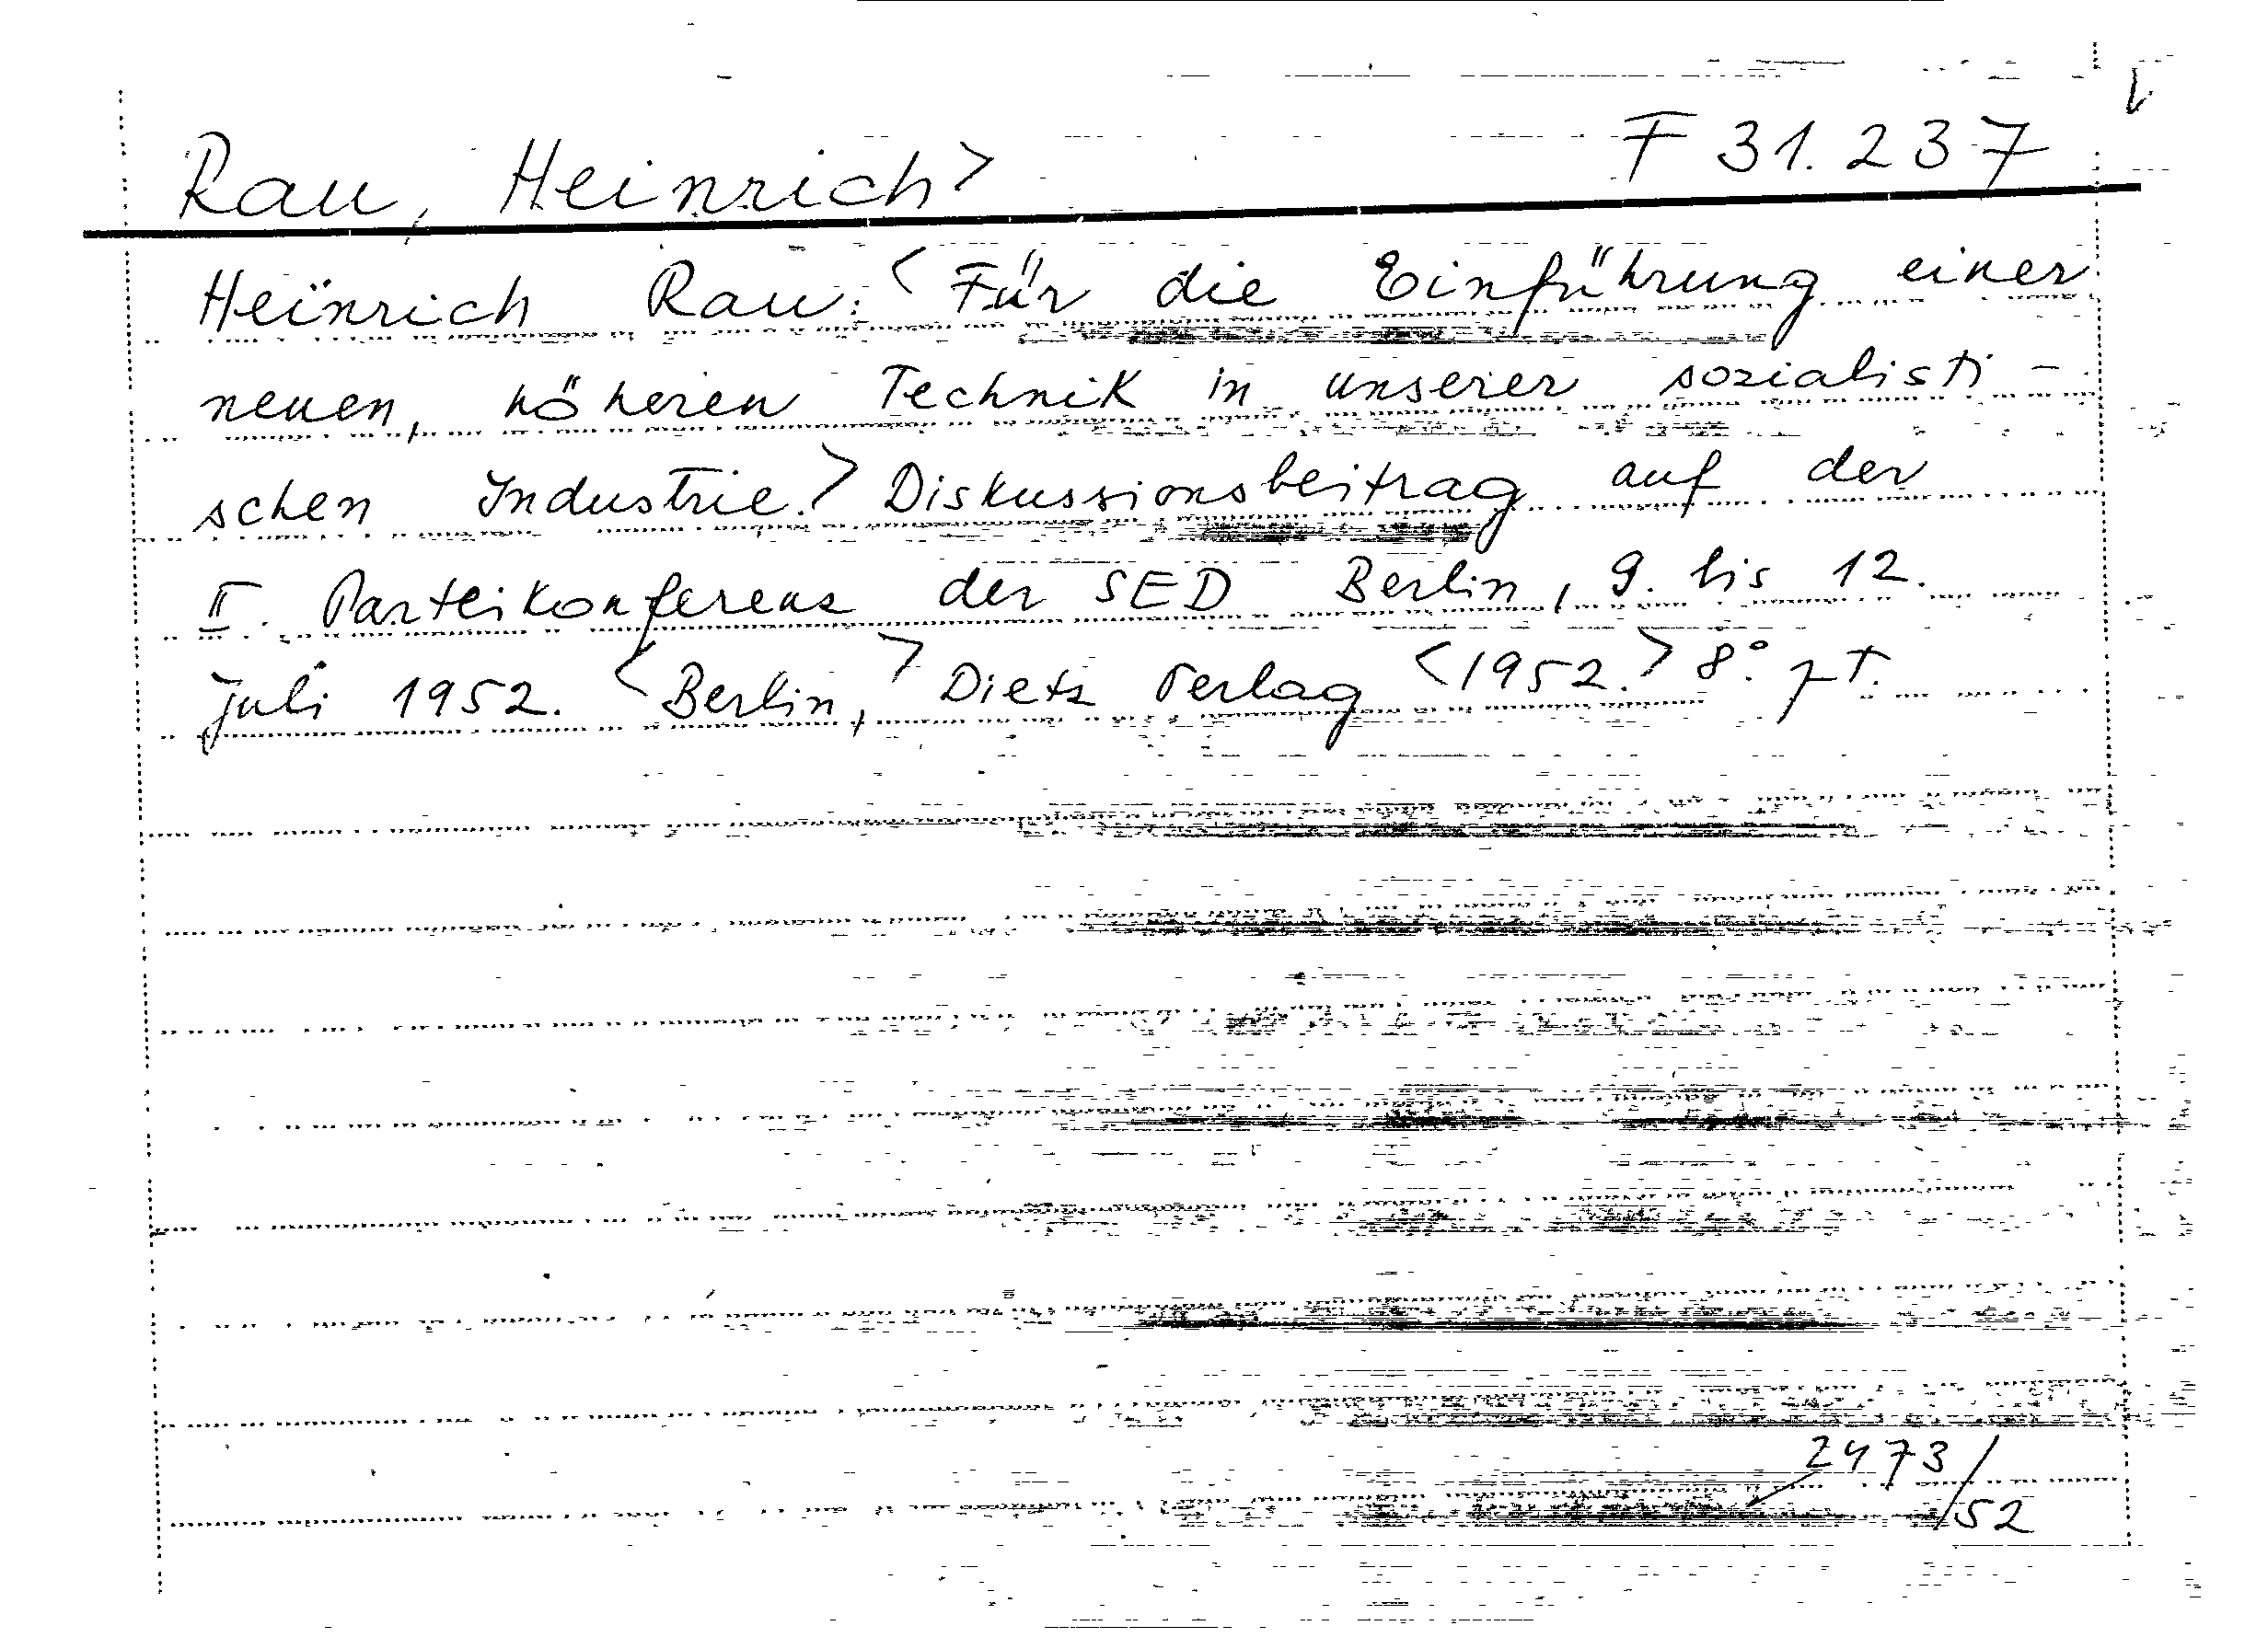 Rau, Heinrich> F 31.237
Heinrich Rau: <Für die Einführung einer
neuen, höheren Technik in unserer sozialisti-
schen Industrie.> Diskussionsbeitrag auf der
II. Parteikonferenz der SED Berlin, 9. bis 12.
Juli 1952. <Berlin,> Dietz Verlag <1952.> 8°.
2473/
52